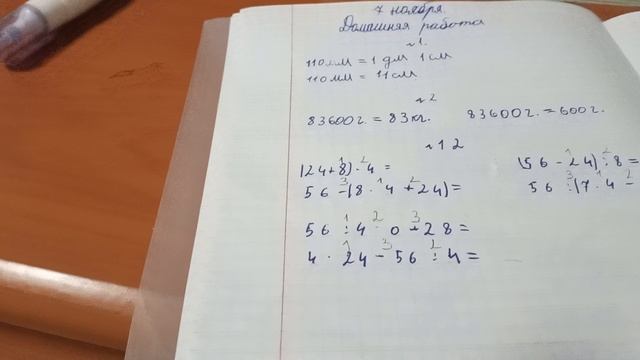 7 ноября.
Домашняя работа
№1.
110мм = 1 дм 1см
110мм = 11см
№2
83600г. = 83кг. 83600г. = 600г.
№12
(24+8)·4= (56-24):8=
56-(8·4+24)= 56:(7·4-
56:4·0+28=
4·24-56:4=